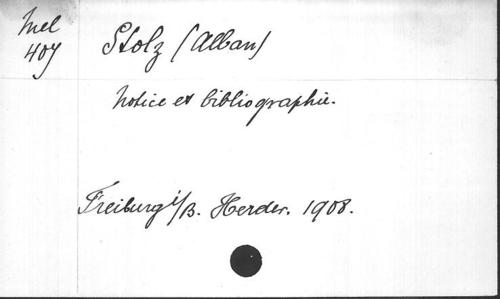 Mel
407
Stolz (Alban)
Notice et bibliographie.
Freiburg i/B. Herder. 1908.